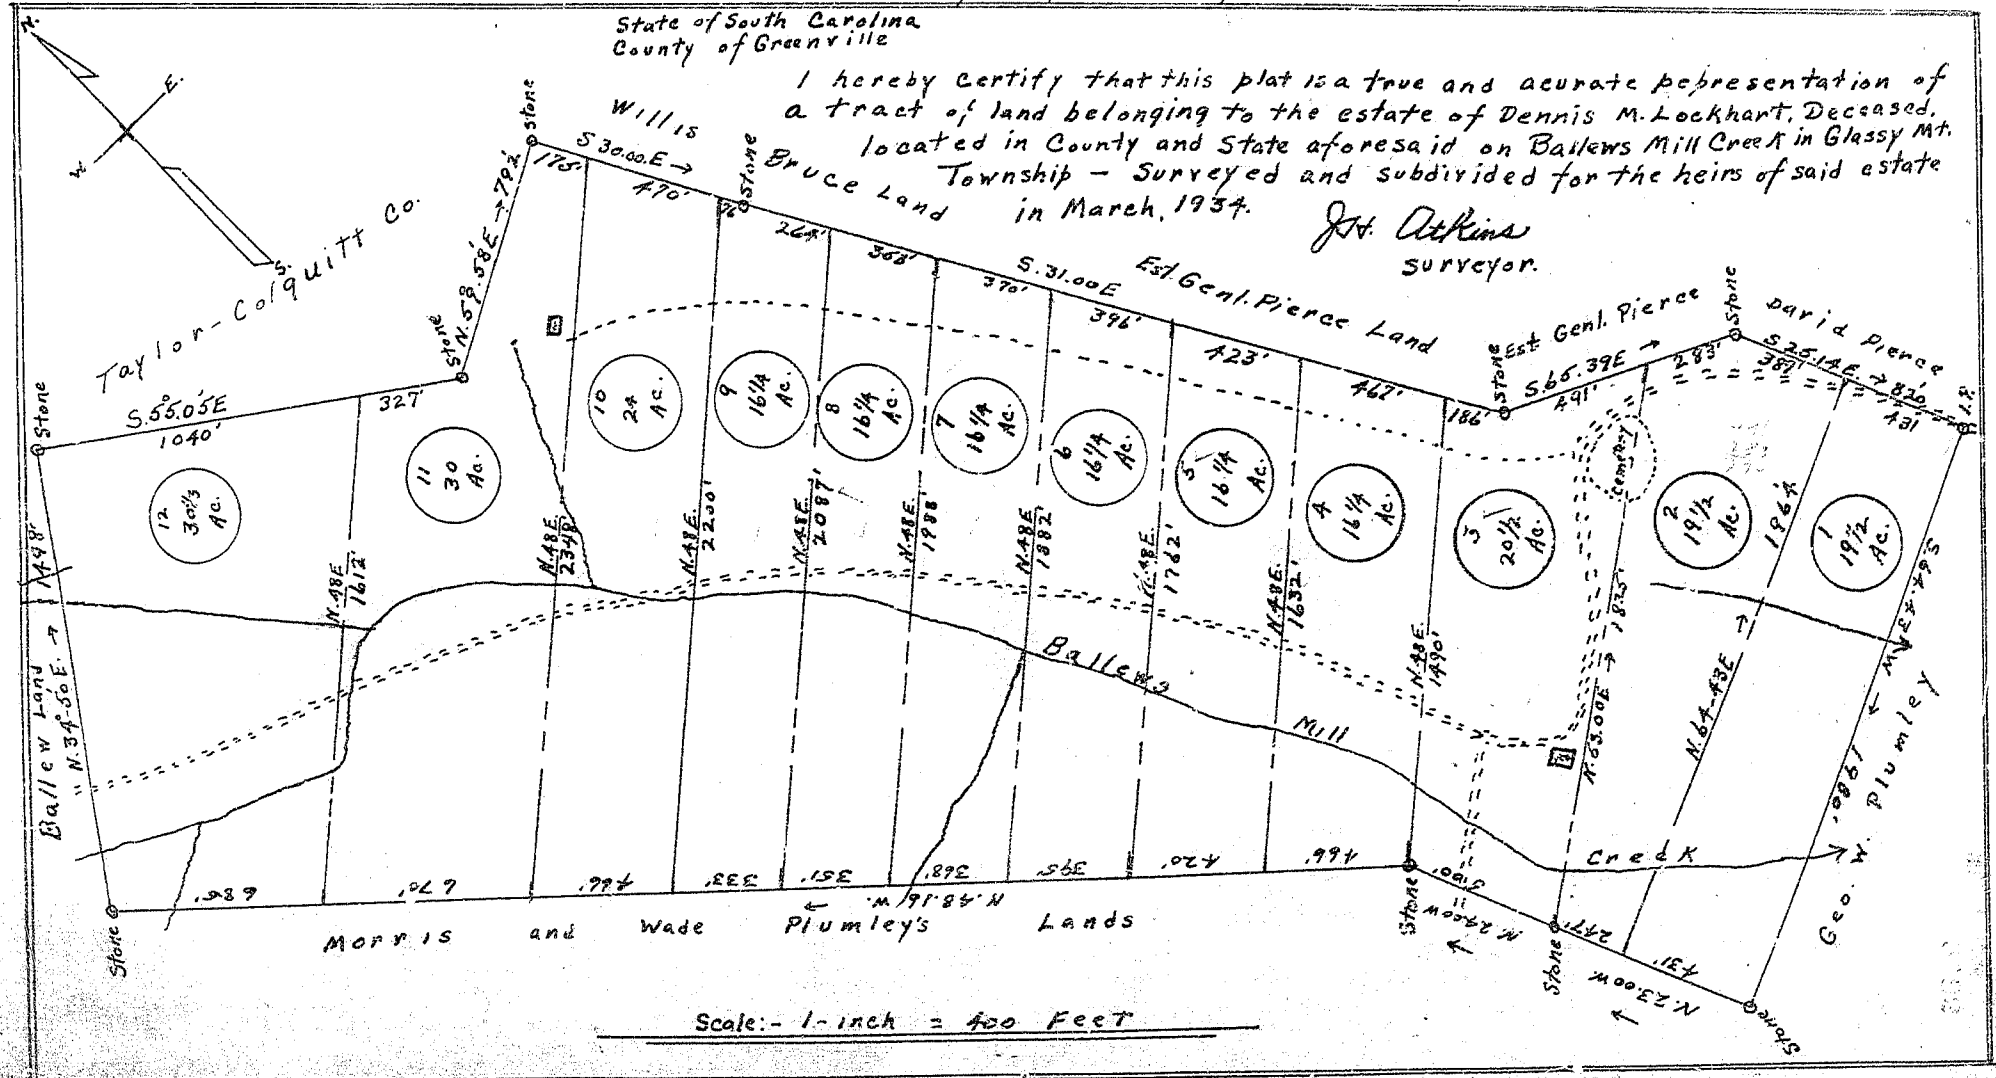 State of South Carolina
County of Greenville
I hereby certify that this plat is a true and acurate pepresentation of
a tract of land belonging to the estate of Dennis M. Lockhart, Deceased,
located in County and State aforesaid on Ballews Mill Creek in Glassy Mt.
Township - Surveyed and subdivided for the heirs of said estate
in March, 1934.
J.H. Atkins
surveyor.
N.
E.
W
S.
Taylor-Colquitt Co.
Stone
S.55.05E
1040'
327'
Stone
N.59.58E → 792'
Stone
Willis
Bruce Land
S 30.00.E →
175'
470'
76'
Stone
264'
368'
S.31.00E
370'
396'
423'
462'
186'
Est. Genl. Pierce Land
Stone
Est Genl. Pierce
S.65.39E →
491'
283'
Stone
David Pierce
S 25.14E. → 820'
387'
431'
I.P.
12
30 1/3
Ac.
11
30
Ac.
10
24
Ac.
9
16 1/4
Ac.
8
16 1/4
Ac.
7
16 1/4
Ac.
6
16 1/4
Ac.
5
16 1/4
Ac.
4
16 1/4
Ac.
3
20 1/2
Ac.
Cemetery
2
19 1/2
Ac.
1
19 1/2
Ac.
Ballew Land
N.34°-50'E. → 1498'
N.48E
1612'
N.48E.
2348'
N.48E.
2200'
N.48E.
2087'
N.48E.
1988'
N.48E
1882'
N.48E.
1762'
N.48E.
1632'
N.48E.
1490'
N.63.00E →
1825'
N.64-43E →
1964'
S.64.43W → 1980'
Geo. A. Plumley
Ballews Mill Creek
Stone
685'
670'
466'
333'
351'
368'
395'
420'
466'
N.48.16.W.
←
Morris and Wade Plumley's Lands
Stone
N.24.00W
←
Stone
247'
431'
N.23.00W
←
Stone
Scale:- 1-inch = 400 Feet